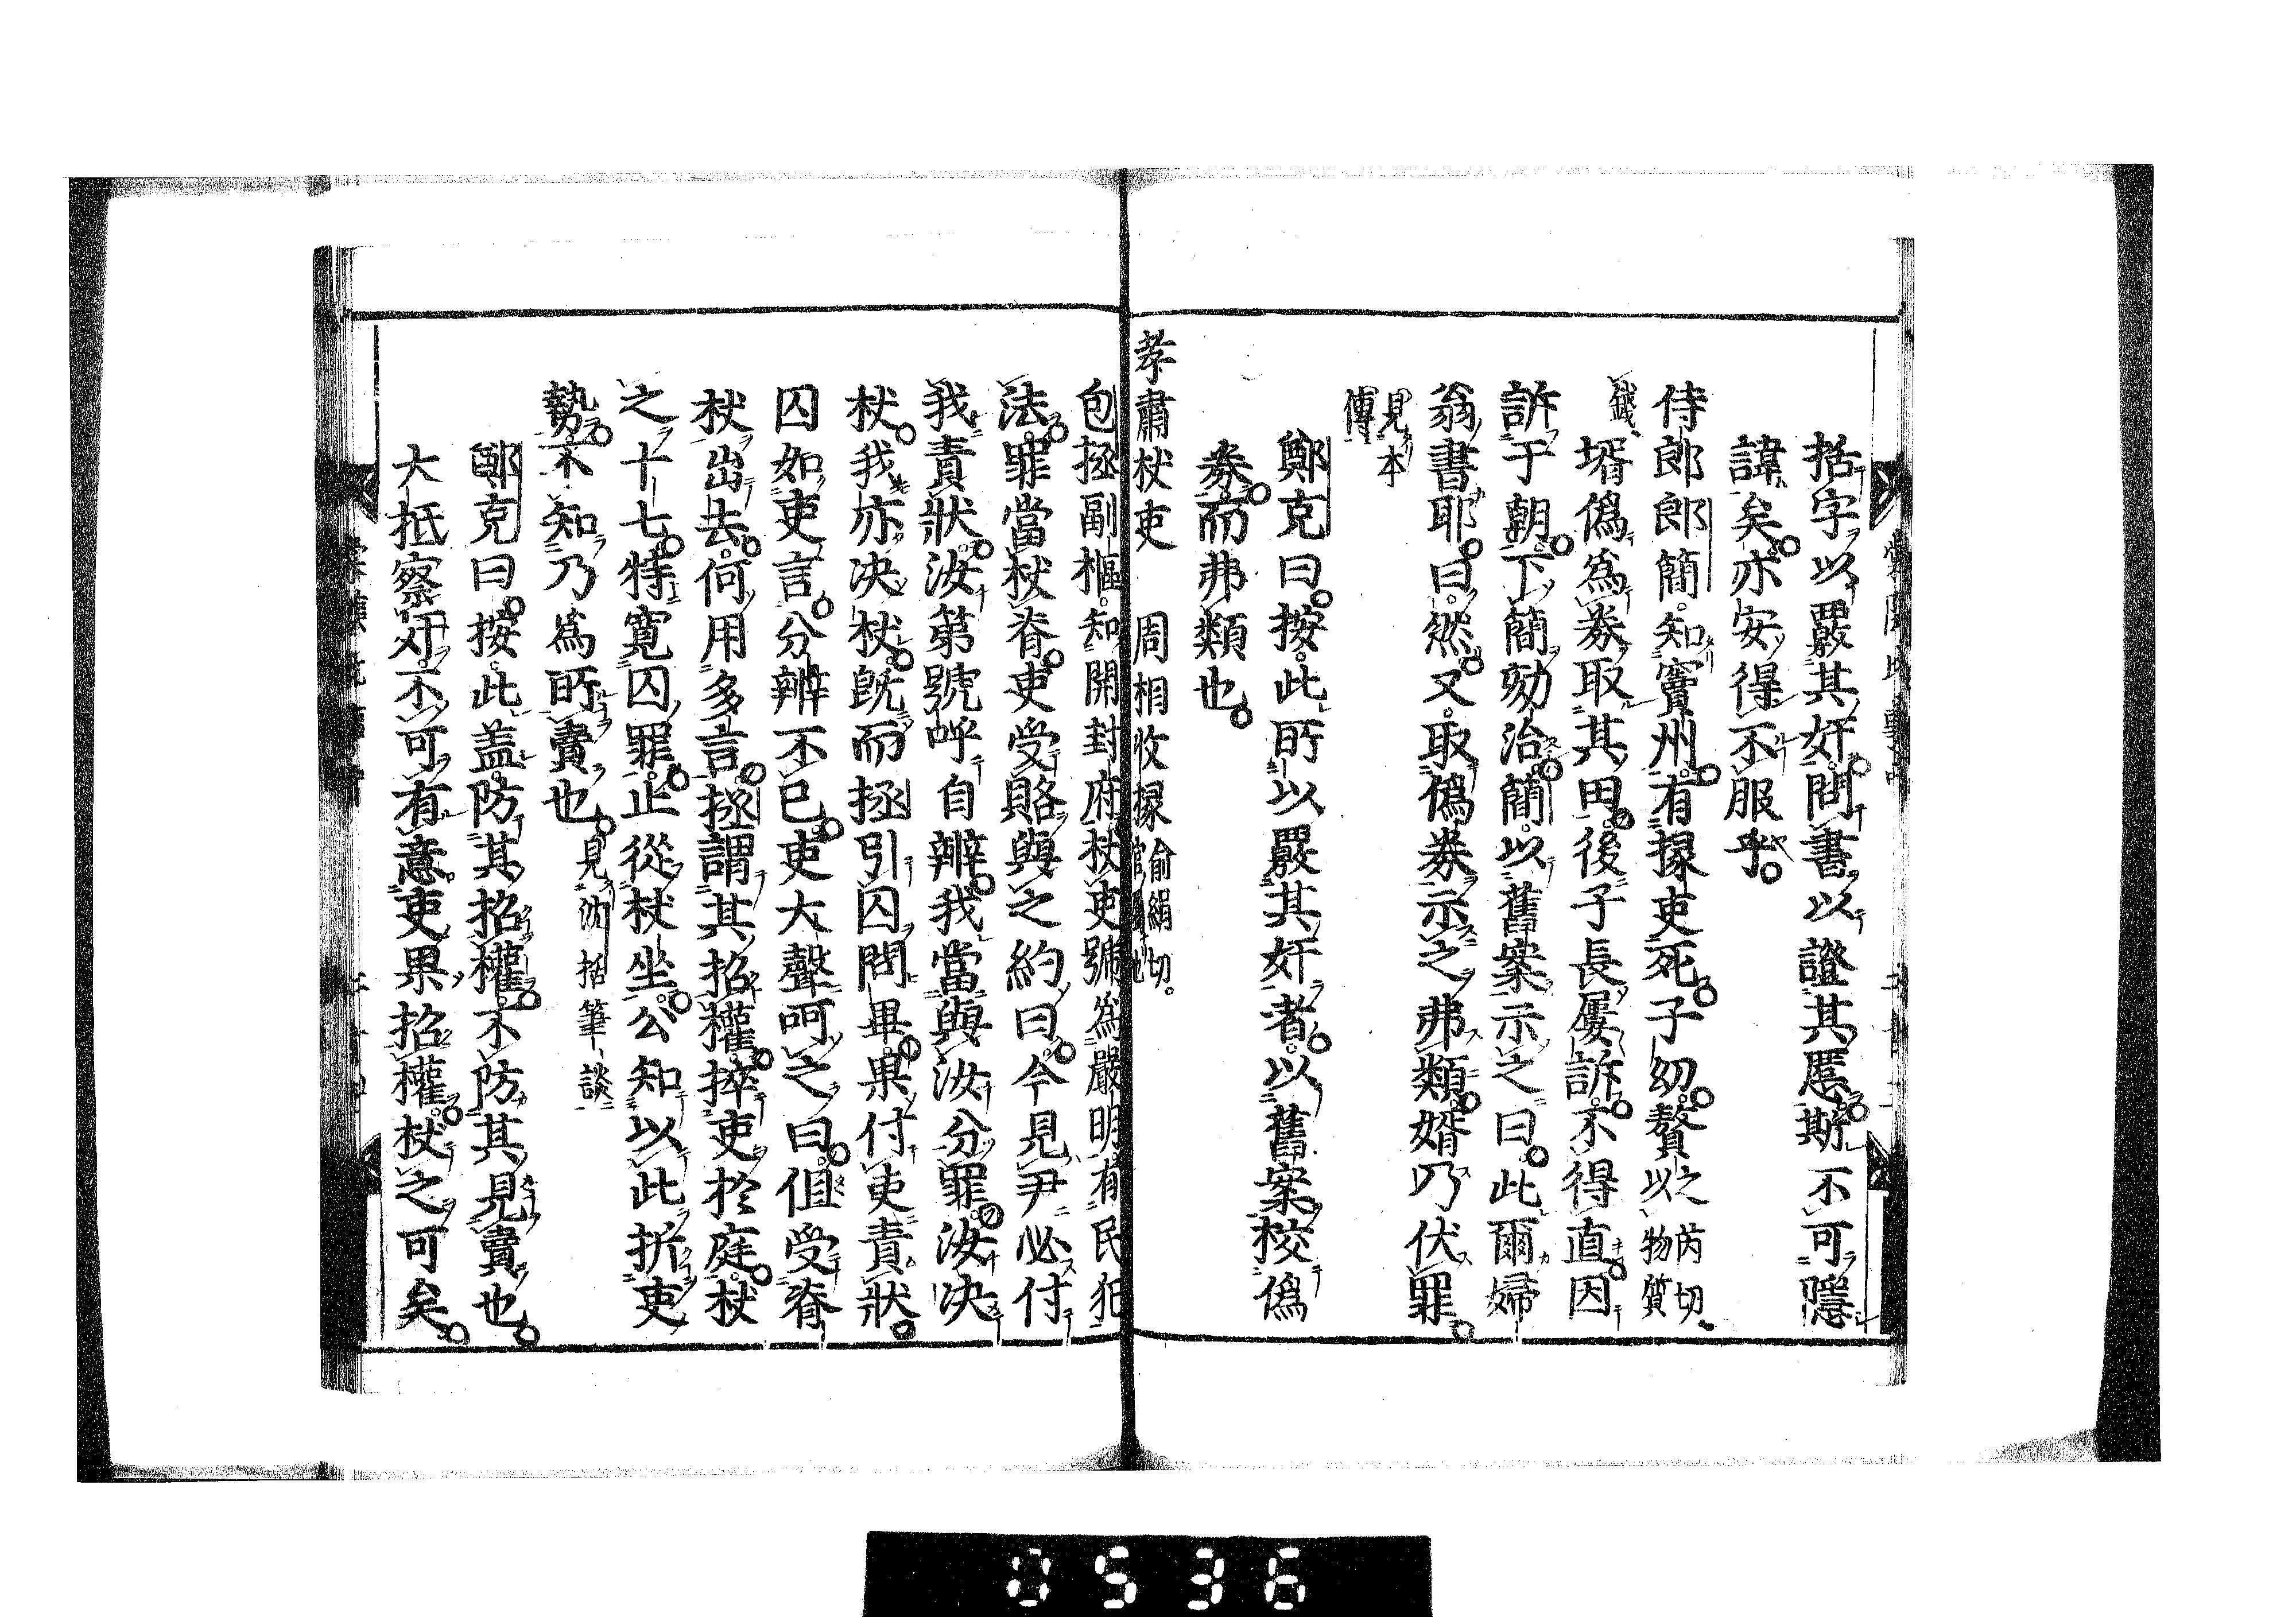 括字以覈其奸問書以證其慝斯不可隱
諱矣亦安得不服乎
侍郎郎簡知竇州有掾吏死子幼贅之芮切以物質
錢壻僞爲券取其田後子長屢訴不得直因
訴于朝下簡劾治簡以舊案示之曰此爾婦
翁書耶曰然又取僞券示之弗類婿乃伏罪
見本
傳
鄭克曰按此所以覈其奸者以舊案校僞
券而弗類也
孝肅杖吏 周相收掾俞絹切
包拯副樞知開封府杖吏號爲嚴明有民犯
法罪當杖脊吏受賂與之約曰今見尹必付
我責狀汝第號呼自辨我當與汝分罪汝决
杖我亦决杖旣而拯引囚問畢果付吏責狀
囚如吏言分辨不已吏大聲呵之曰但受脊
杖出去何用多言拯謂其招權捽吏於庭杖
之十七特寬囚罪止從杖坐公知以此折吏
勢不知乃爲所賣也見沈括筆談
鄭克曰按此盖防其招權不防其見賣也
大抵察奸不可有意吏果招權杖之可矣
0536